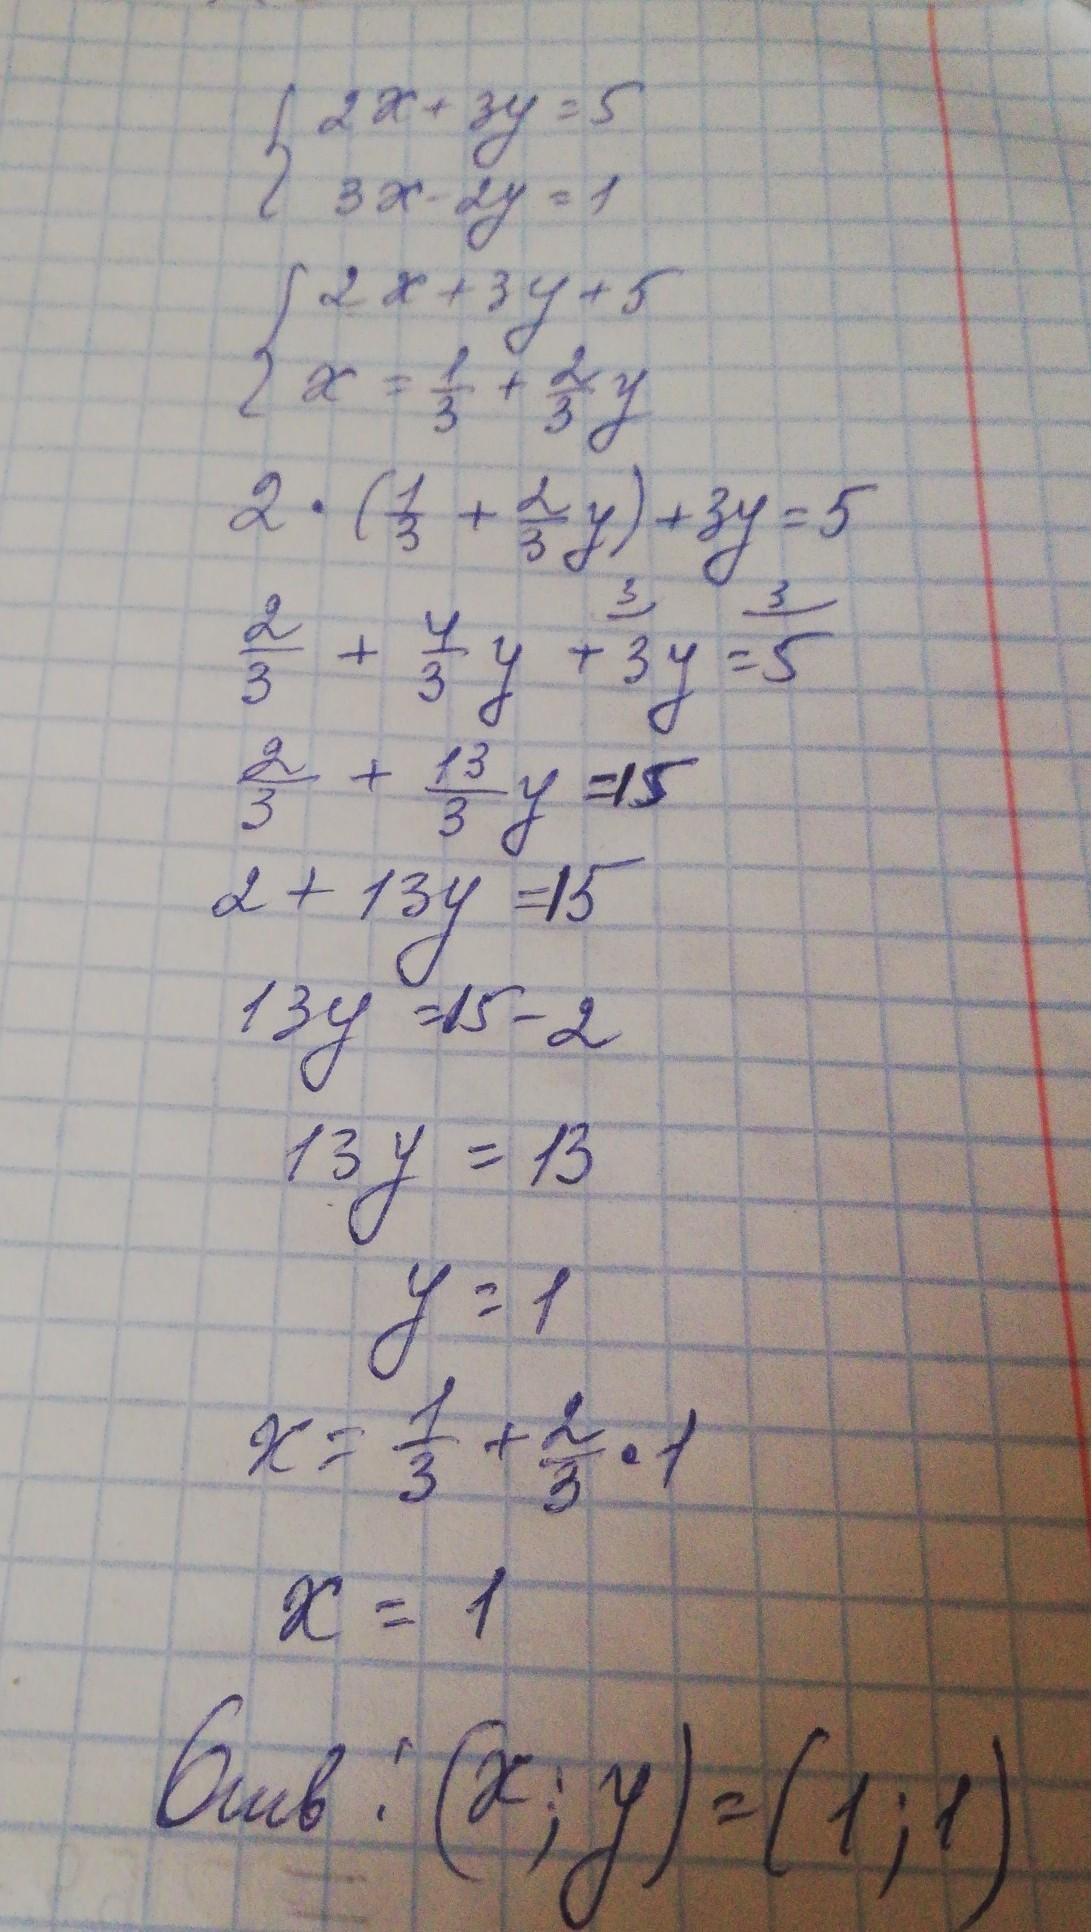 { 2x + 3y = 5
3x - 2y = 1
{ 2x + 3y + 5
x = 1/3 + 2/3 y
2 · (1/3 + 2/3 y) + 3y = 5
2/3 + 4/3 y + 3/ 3y = 3/ 5
2/3 + 13/3 y = 15
2 + 13y = 15
13y = 15 - 2
13y = 13
y = 1
x = 1/3 + 2/3 · 1
x = 1
Отв : (x; y) = (1; 1)